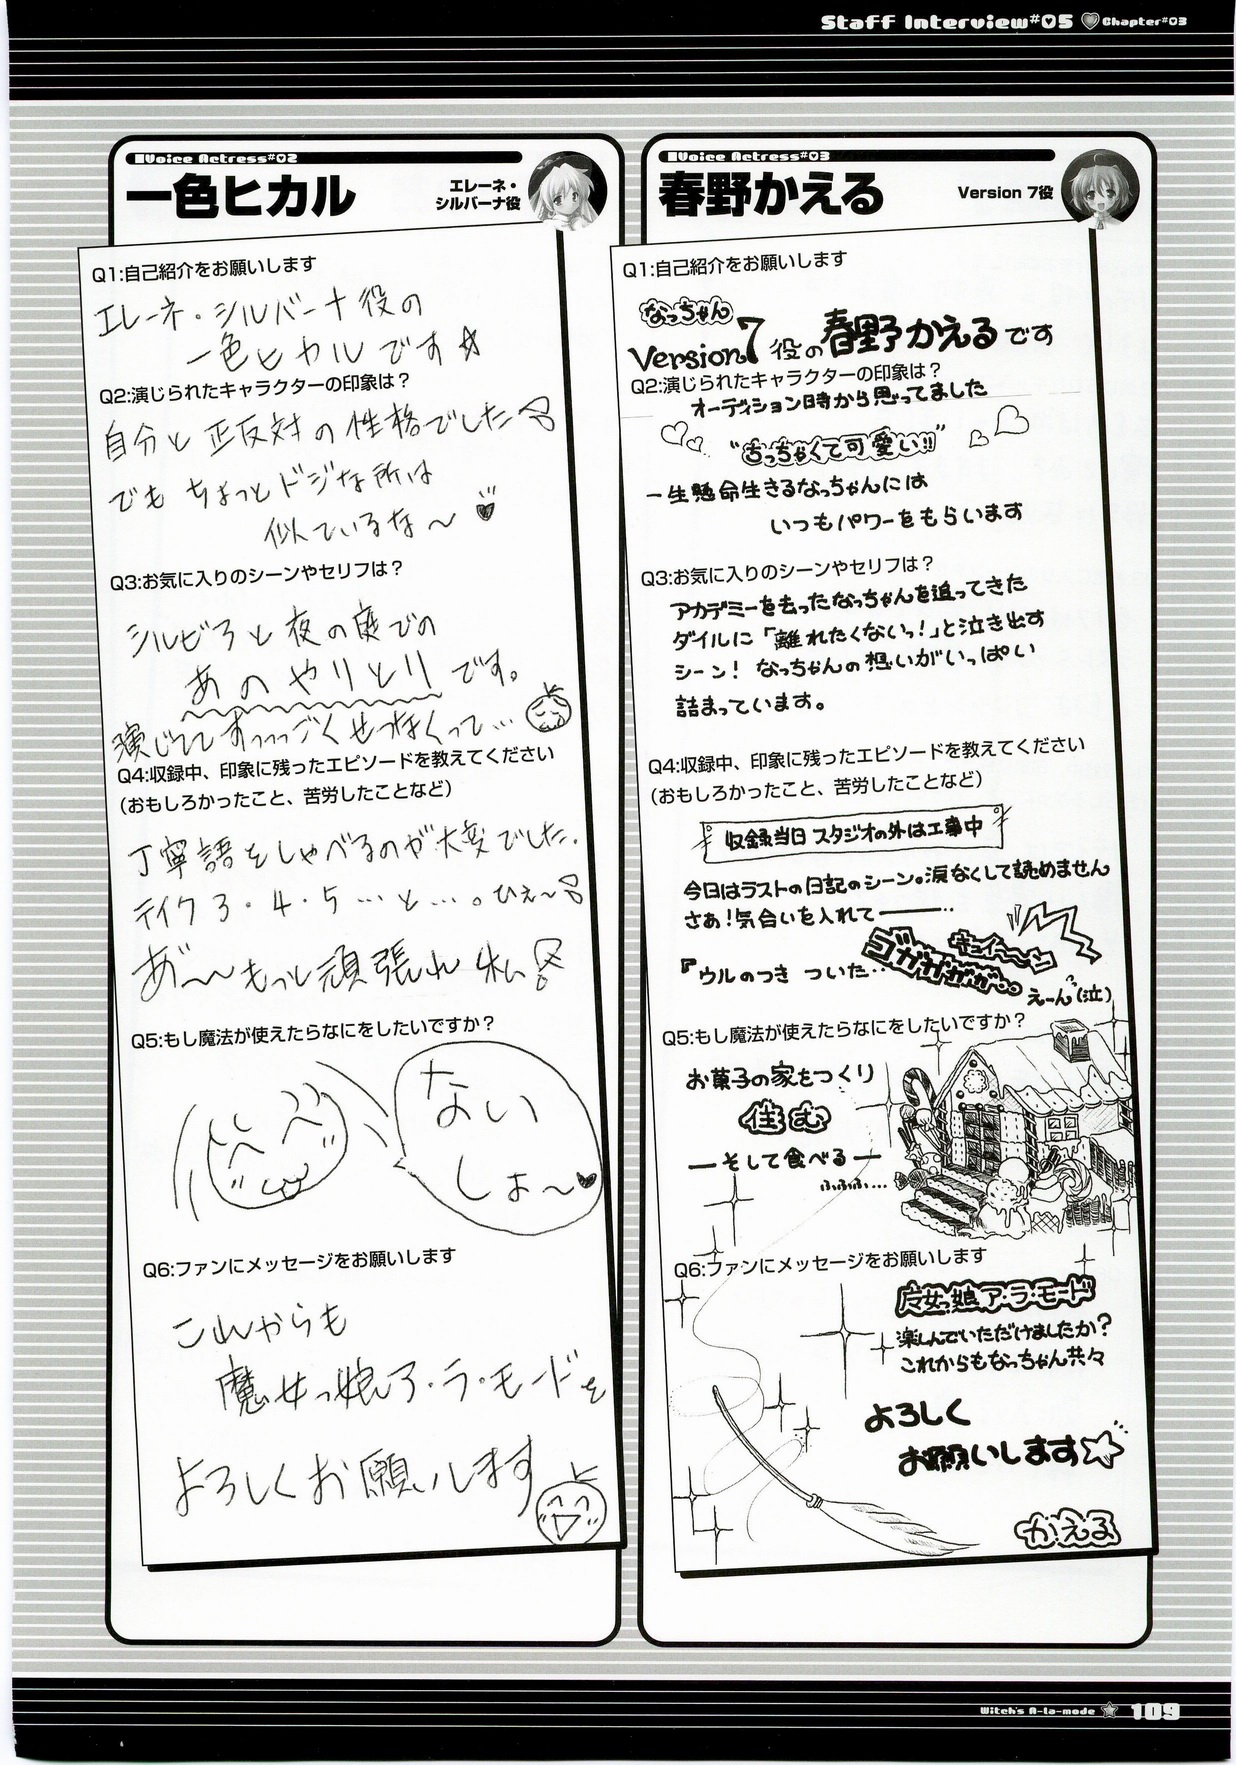 Staff Interview#05 Chapter#03
Voice Actress#02
一色ヒカル
エレーネ・
シルバーナ役
Q1:自己紹介をお願いします
エレーネ・シルバーナ役の
一色ヒカルです☆
Q2:演じられたキャラクターの印象は?
自分と正反対の性格でした
でも ちょっとドジな所は
似ているな〜
Q3:お気に入りのシーンやセリフは?
シルビアと夜の庭での
あのやりとりです。
演じててすっっっごくせつなくって…
Q4:収録中、印象に残ったエピソードを教えてください
(おもしろかったこと、苦労したことなど)
丁寧語をしゃべるのが大変でした。
テイク3・4・5…と…。ひぇ〜
あ゛〜〜もっと頑張れ私い
Q5:もし魔法が使えたらなにをしたいですか?
ない
しょ〜♥
Q6:ファンにメッセージをお願いします
これからも
魔女っ娘ア・ラ・モードを
よろしくお願いします
Voice Actress#03
春野かえる
Version 7役
Q1:自己紹介をお願いします
なっちゃん
Version7役の春野かえるです
Q2:演じられたキャラクターの印象は?
オーディション時から思ってました
"ちっちゃくて可愛い!!"
一生懸命生きるなっちゃんには
いつもパワーをもらいます
Q3:お気に入りのシーンやセリフは?
アカデミーを去ったなっちゃんを追ってきた
ダイルに「離れたくないっ!」と泣き出す
シーン! なっちゃんの想いがいっぱい
詰まっています。
Q4:収録中、印象に残ったエピソードを教えてください
(おもしろかったこと、苦労したことなど)
収録当日 スタジオの外は工事中
今日はラストの日記のシーン。涙なくして読めません
さぁ!気合いを入れて――…
キュイ〜ン
『ウルのつき ついた‥ゴガガガガガ…
えーん(泣)
Q5:もし魔法が使えたらなにをしたいですか?
お菓子の家をつくり
住む
―そして食べる―
ふふふ…
Q6:ファンにメッセージをお願いします
魔女っ娘ア・ラ・モード
楽しんでいただけましたか?
これからもなっちゃん共々
よろしく
お願いします☆
かえる
Witch's A-la-mode ☆ 109